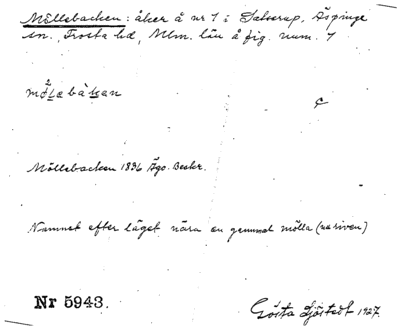 Möllebacken: åker å nr 1 i Satserup, Äspinge
sn., Frosta hd, Mlm. län å fig. num. 7
mø²læbàkan
¢
Möllebacken 1836 Ägo. Beskr.
Namnet efter läget nära en gammal mölla (nu riven)
Nr 5943.
Gösta Sjöstedt 1927.